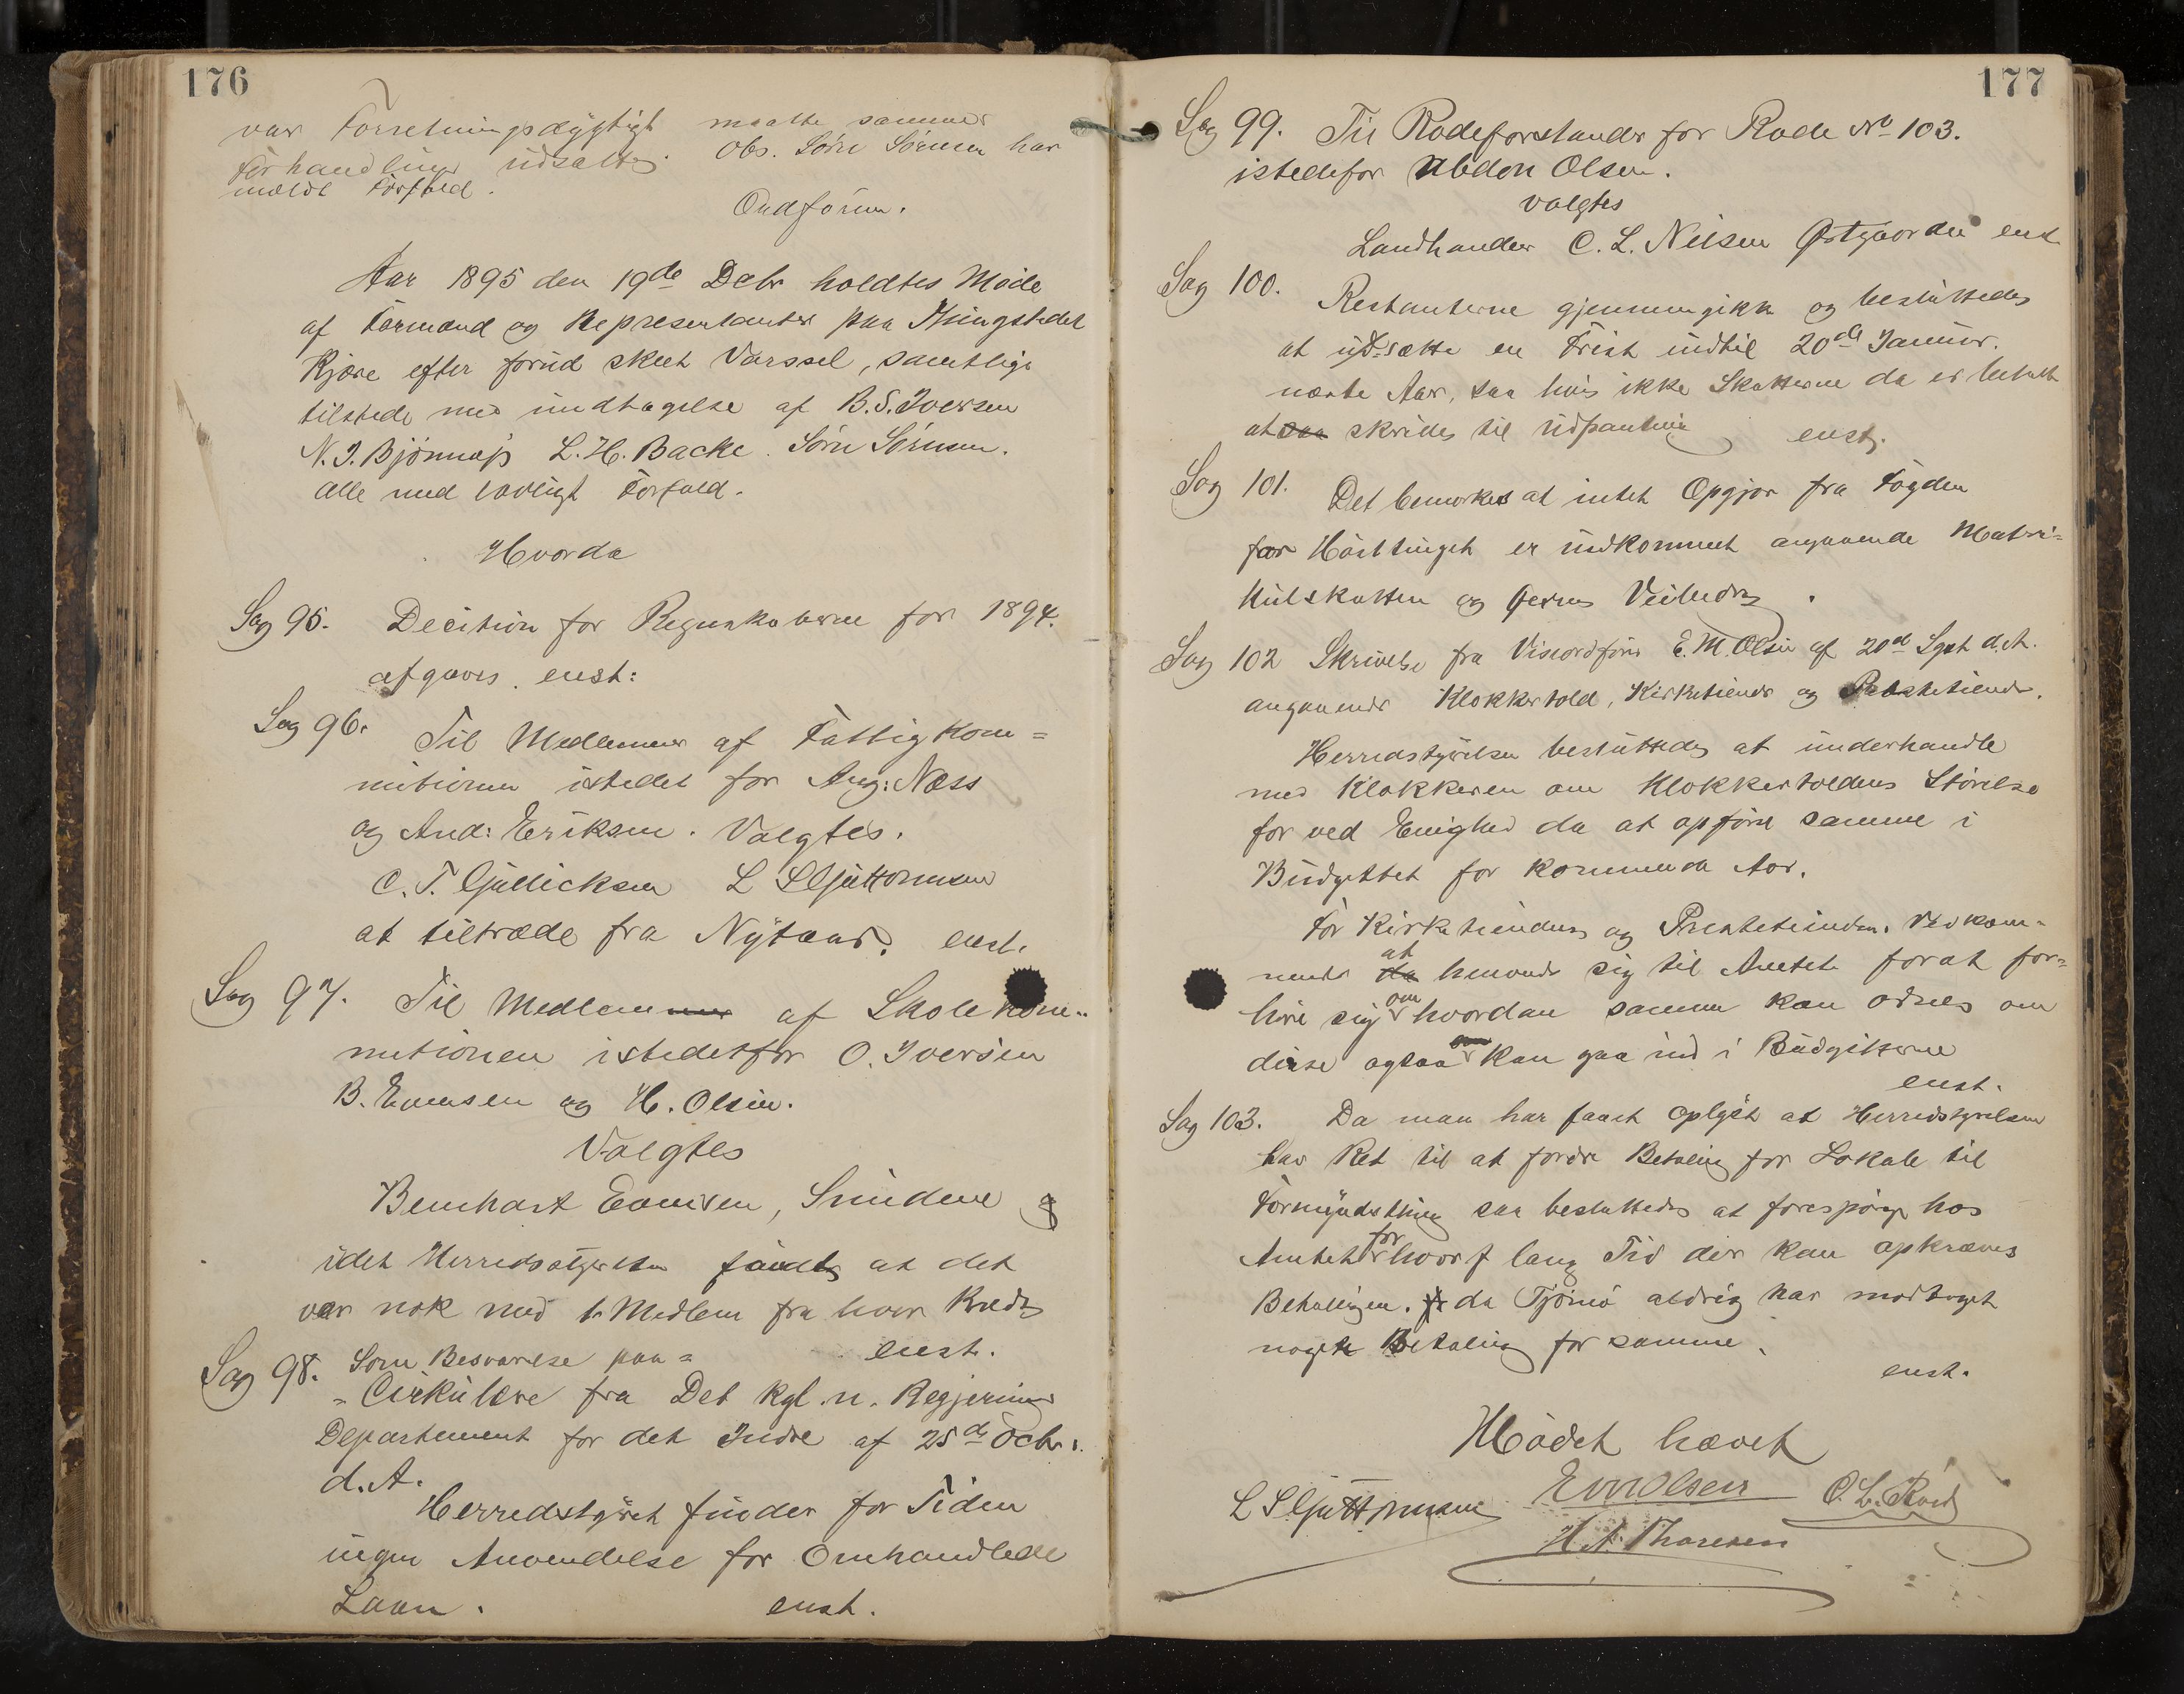 176
var Forretningsdygtigt maatte sammes
Forhandling udsættes. Obs. Sörn Sörnsen har
meldt Forfald.
Ordförer.
Aar 1895 den 19de Decbr holdtes Möde
af Formænd og Representanter paa Thingstedet
Kjære efter forud skeet Varssel, samtlige
tilstede med undtagelse af B.S. Iversen
N.J. Bjönnæs L.H. Backe. Sörn Sörnsen.
alle med lovligt Forfald.
Hvorda
Sag 95. Decition for Regnskaberne for 1894.
afgaves enst:
Sag 96. Til Medlemmer af Fattigkom=
mitionen istedet for Aug: Næss
og And: Eriksen. Valgtes.
C.T. Gullicksen L S Guttormsen
at tiltræde fra Nytaar. enst.
Sag 97. Til Medlemmer af Skolekom=
mitionen istedetfor O. Iversen
B. Evensen og H. Olsen.
Valgtes
Bernhart Evensen, Sundene og
idet Herredsstyrelsen fandts at det
var nok med 1 Medlem fra hver Kreds
enst.
Sag 98. Som Besvarelse paa=
=Cirkulære fra Det kgl. n. Regjerings
Departement for det Indre af 25de Octbr.
d.A.
Herredsstyret finder for Tiden
ingen Anvendelse for Omhandlede
Laan. enst.
177
Sag 99. Til Rodeforstander for Rode No 103.
istedefor Abdon Olsen.
valgtes
Landhandler C. L. Nilsen Östgaarden enst
Sag 100. Restanterne gjennemgikk og besluttedes
at udsætte en Frist indtil 20de Januar.
næste Aar, saa hvis ikke Skatterne da er betalt
at saa skrides til Udpantning enst.
Sag 101. Det bemerkes at intet Opgjör fra Fogden
for Hösttinget er indkommet angaaende Matri=
kulskatten og Veibidrag.
Sag 102 Skrivelse fra Viseordförer E.M. Olsen af 20de Sept d.A.
angaaende Klokkertold, Kirketiende og Prestetiende.
Herredsstyrelsen besluttedes at underhandle
med Klokkeren om Klokkertoldens Störelse
for ved Enighed da at opföre samme i
Budgettet for kommende Aar.
For Kirketiendens og Prestetienden. Vedkom=
mende da at henvende sig til Amtet forat for=
höre sig om hvordan samme kan ordnes om
disse ogsaa kan gaa ind i Budgetterne
enst.
Sag 103. Da man har faaet oplyst at Herredsstyrelsen
har Ret til at fordre Betaling for Lokale til
Formyndsthing saa besluttedes at forespörge hos
Amtet for hvor lang Tid der kan opkræves
Betalingen. da Tjömö aldrig har modtaget
nogen Betaling for samme.
enst.
Mödet hævet
L S Guttormsen E M Olsen O. L. Röed
H. A. Thoresen